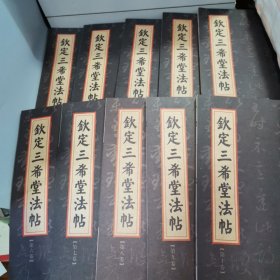 欽定三希堂法帖
欽定三希堂法帖
欽定三希堂法帖
欽定三希堂法帖
欽定三希堂法帖
欽定三希堂法帖
欽定三希堂法帖
欽定三希堂法帖
第八卷
欽定三希堂法帖
欽定三希堂法帖